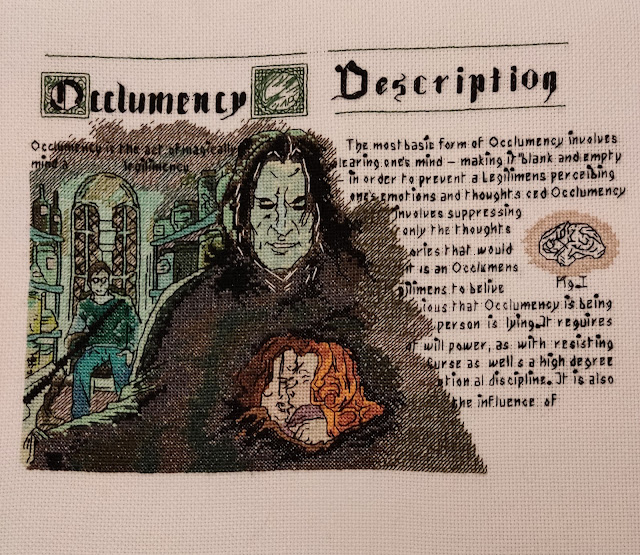 Occlumency
Occlumency is the act of magically
mind a
legilimency
Description
The most basic form of Occlumency involves
learing one's mind – making it blank and empty
in order to prevent a Legilimens perceibing
one's emotions and thoughts ced Occlumency
involves suppressing
only the thoughts
ories that would
it is an Occlumens
ilimens to belive
ious that Occlumency is being
person is lying. It requires
f will power, as with resisting
urse as well s a high degree
tional discipline. It is also
the influence of
Fig. I